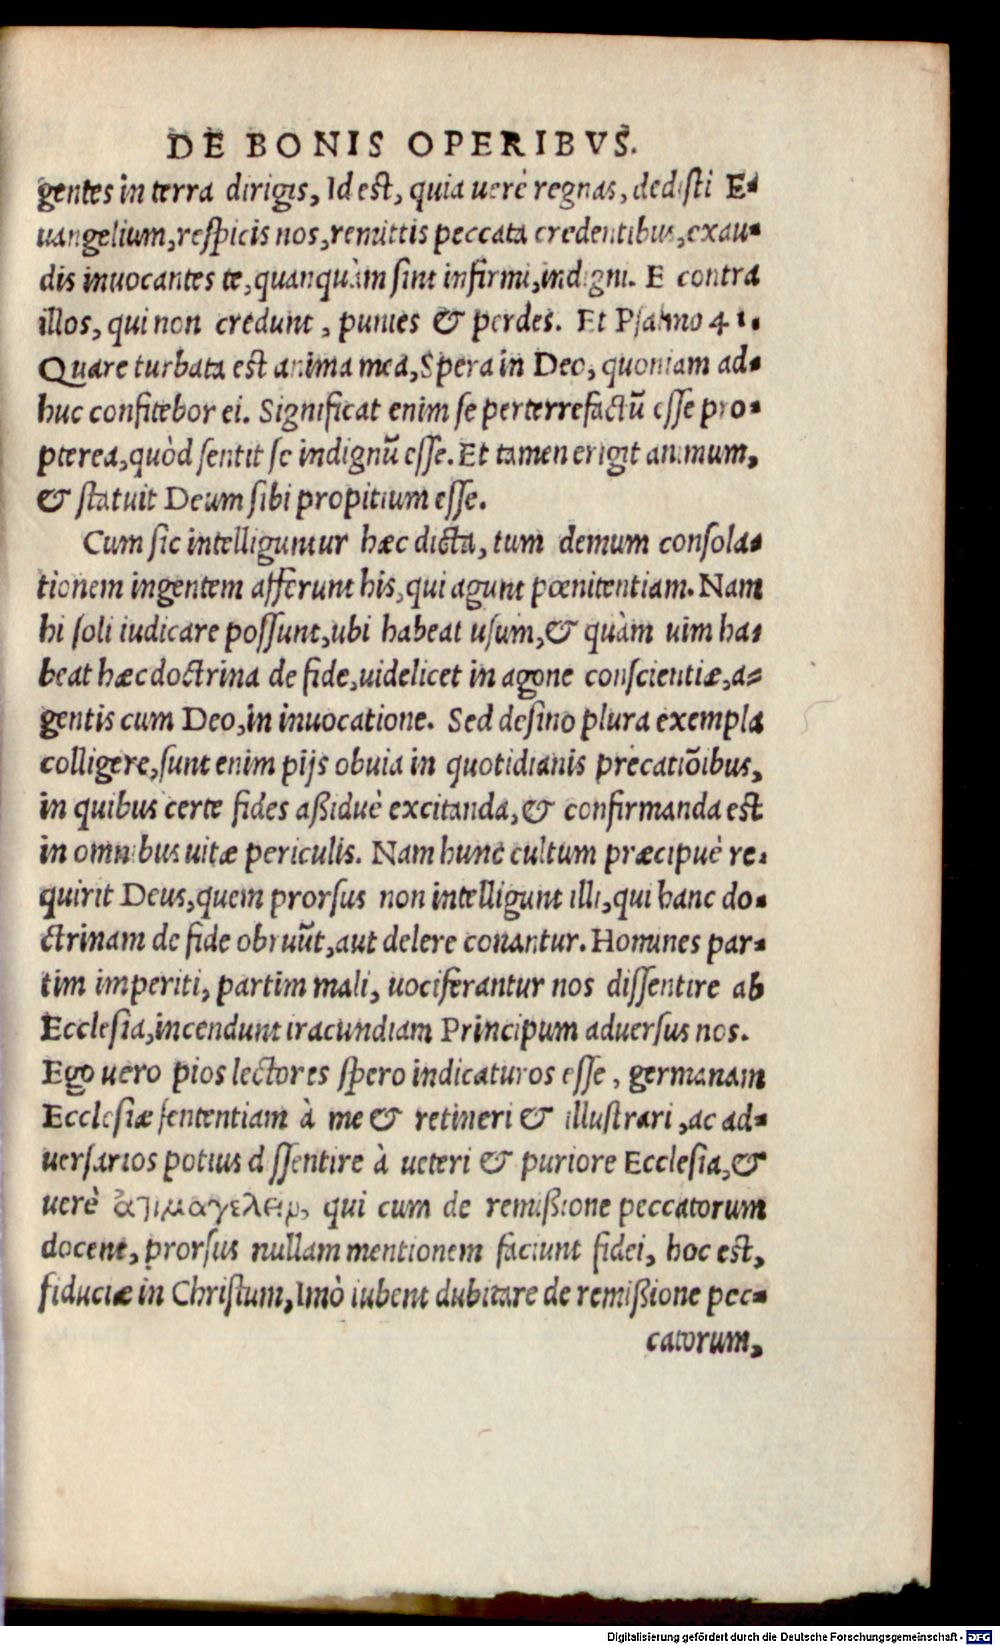 DE BONIS OPERIBVS.
gentes in terra dirigis, Id est, quia uerè regnas, dedisti E-
uangelium, respicis nos, remittis peccata credentibus, exau-
dis inuocantes te, quanquàm sint infirmi, indigni. E contra
illos, qui non credunt, punies & perdes. Et Psalmo 41.
Quare turbata est anima mea, Spera in Deo, quoniam ad-
huc confitebor ei. Significat enim se perterrefactũ esse pro-
pterea, quòd sentit se indignũ esse. Et tamen erigit animum,
& statuit Deum sibi propitium esse.
Cum sic intelliguntur hæc dicta, tum demum consola-
tionem ingentem afferunt his, qui agunt pœnitentiam. Nam
hi soli iudicare possunt, ubi habeat usum, & quàm uim ha-
beat hæc doctrina de fide, uidelicet in agone conscientiæ, a-
gentis cum Deo, in inuocatione. Sed desino plura exempla
colligere, sunt enim pijs obuia in quotidianis precatiõibus,
in quibus certe fides aßiduè excitanda, & confirmanda est
in omnibus uitæ periculis. Nam hunc cultum præcipuè re-
quirit Deus, quem prorsus non intelligunt illi, qui hanc do-
ctrinam de fide obruũt, aut delere conantur. Homines par-
tim imperiti, partim mali, uociferantur nos dissentire ab
Ecclesia, incendunt iracundiam Principum aduersus nos.
Ego uero pios lectores spero indicaturos esse, germanam
Ecclesiæ sententiam à me & retineri & illustrari, ac ad-
uersarios potius dissentire à ueteri & puriore Ecclesia, &
uerè ἀτιμαγελειν, qui cum de remißione peccatorum
docent, prorsus nullam mentionem faciunt fidei, hoc est,
fiduciæ in Christum, Imò iubent dubitare de remißione pec-
catorum,
Digitalisierung gefördert durch die Deutsche Forschungsgemeinschaft - DFG